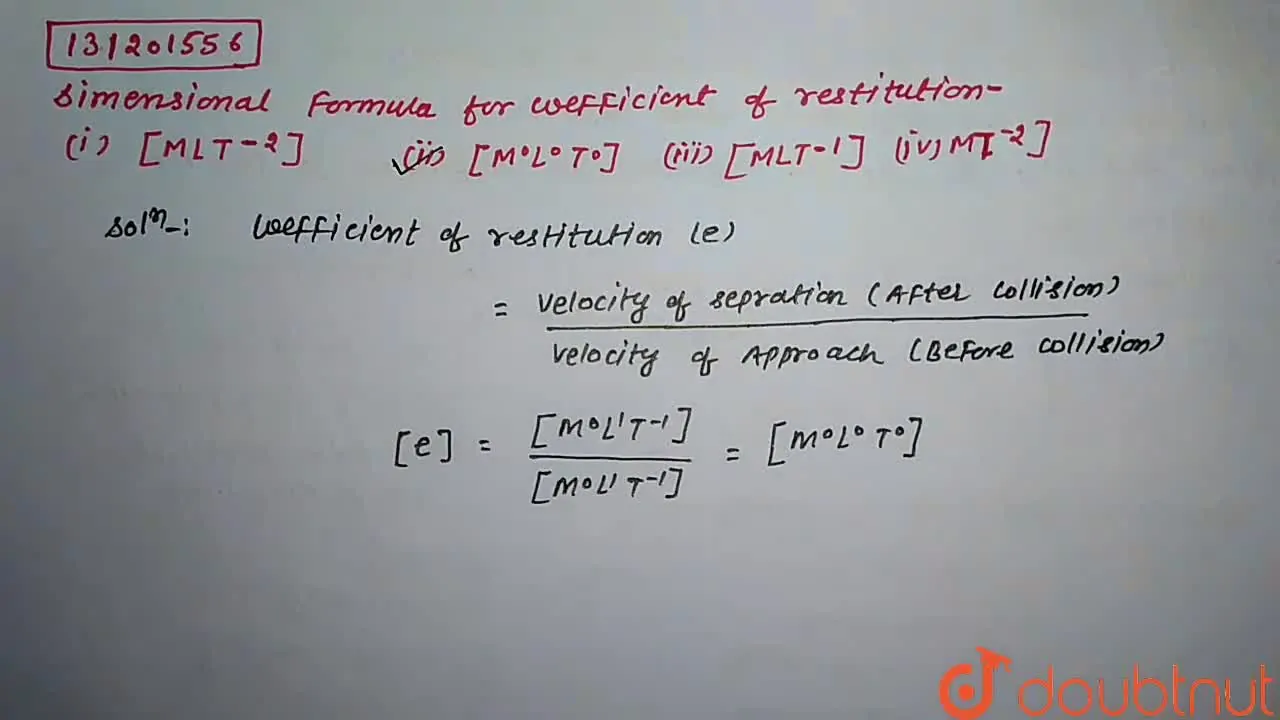 131201556
Dimensional Formula for coefficient of restitution-
(i) [MLT-2] (ii) [M°L°T°] (iii) [MLT-1] (iv) MT⁻²]
Solⁿ-: Coefficient of restitution (e)
= Velocity of sepration (After collision)
Velocity of Approach (Before collision)
[e] = [M°L'T⁻¹] = [M°L°T°]
[M°L'T⁻¹]
doubtnut